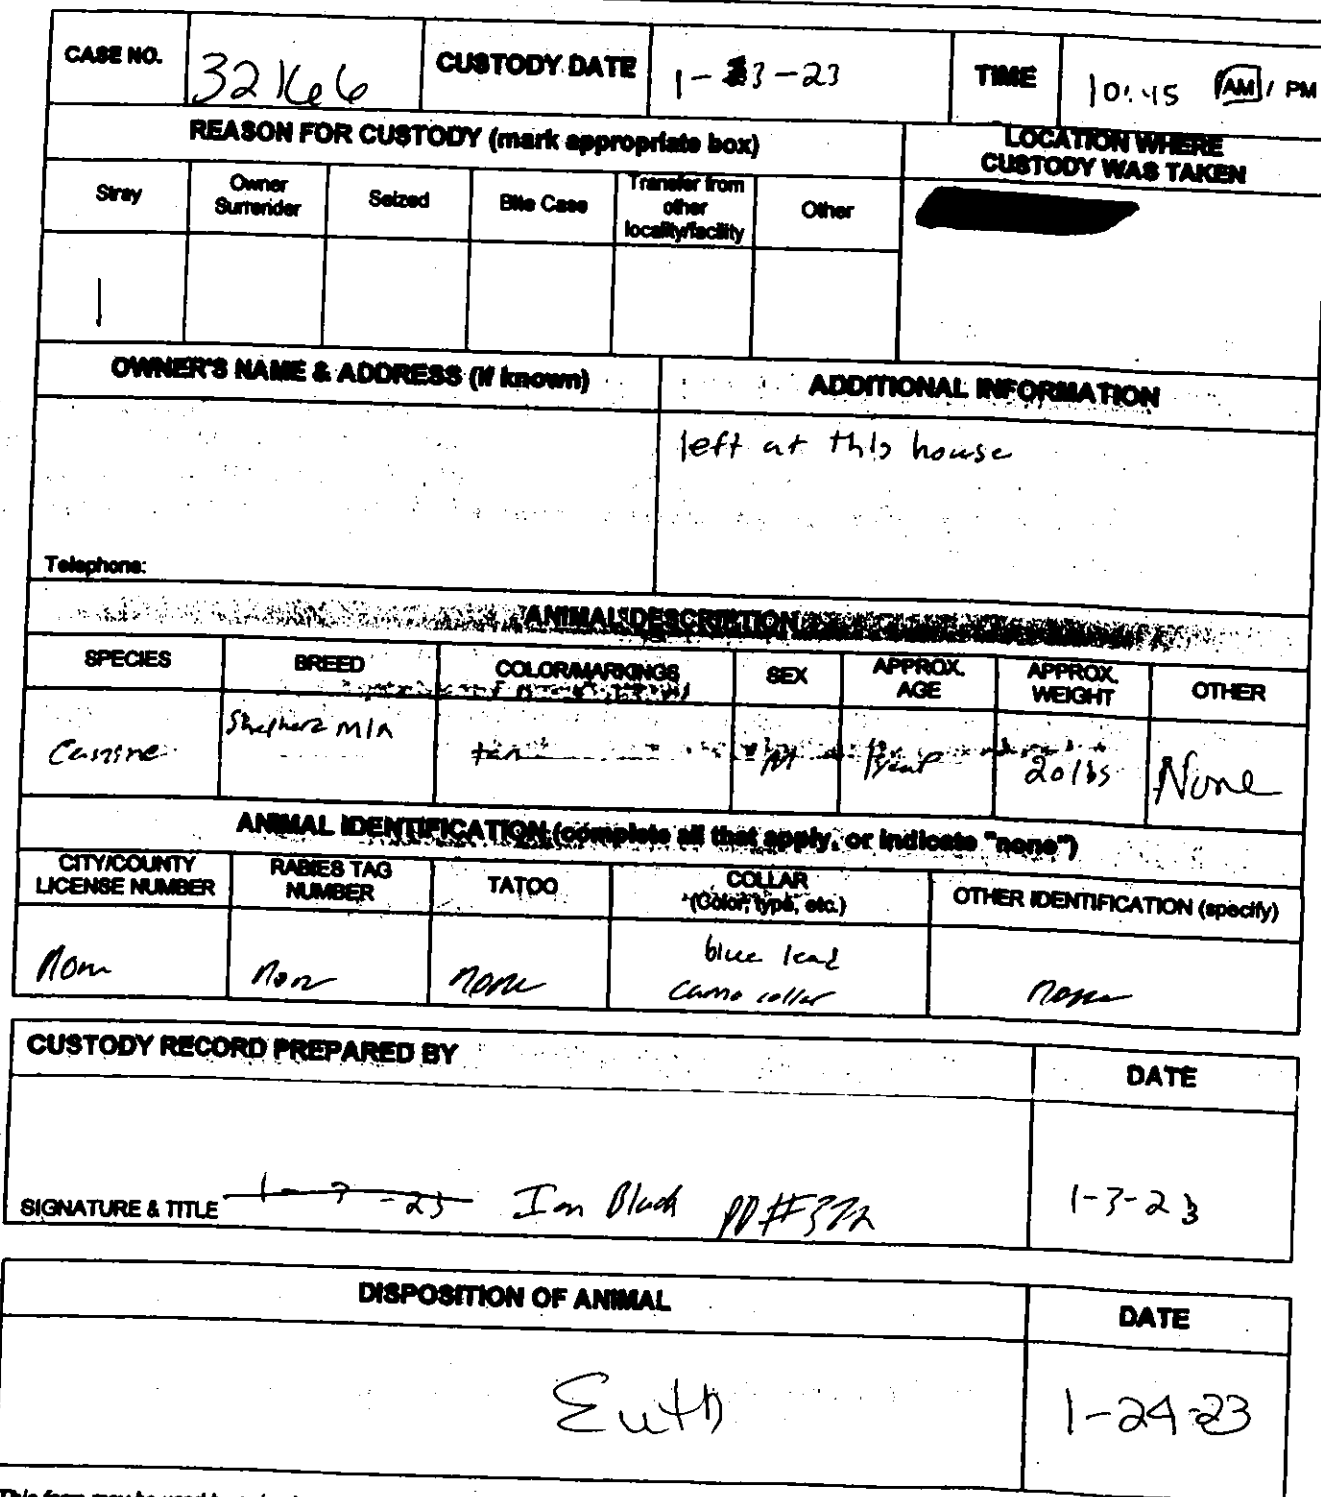 CASE NO. 32166 CUSTODY DATE 1-3-23 TIME 10:45 AM / PM
REASON FOR CUSTODY (mark appropriate box)
LOCATION WHERE
CUSTODY WAS TAKEN
Stray
Owner
Surrender
Seized
Bite Case
Transfer from
other
locality/facility
Other
|
OWNER'S NAME & ADDRESS (if known)
ADDITIONAL INFORMATION
left at this house
Telephone:
ANIMAL DESCRIPTION
SPECIES
BREED
COLOR/MARKINGS
SEX
APPROX.
AGE
APPROX.
WEIGHT
OTHER
Canine
Shepherd mix
tan
M
1 year
20 lbs
None
ANIMAL IDENTIFICATION (complete all that apply, or indicate "none")
CITY/COUNTY
LICENSE NUMBER
RABIES TAG
NUMBER
TATOO
COLLAR
(Color, type, etc.)
OTHER IDENTIFICATION (specify)
none
none
none
blue lead
camo collar
none
CUSTODY RECORD PREPARED BY
DATE
SIGNATURE & TITLE 1-3-23 Ian Black
1-3-23
DISPOSITION OF ANIMAL
DATE
Euth
1-24-23